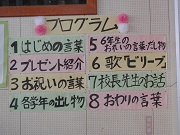 プログラム
1 はじめの言葉
2 プレゼント紹介
3 お祝いの言葉
4 各学年の出し物
5 6年生の
お祝いの言葉・だし物
6 歌「ビリーブ」
7 校長先生のお話
8 おわりの言葉